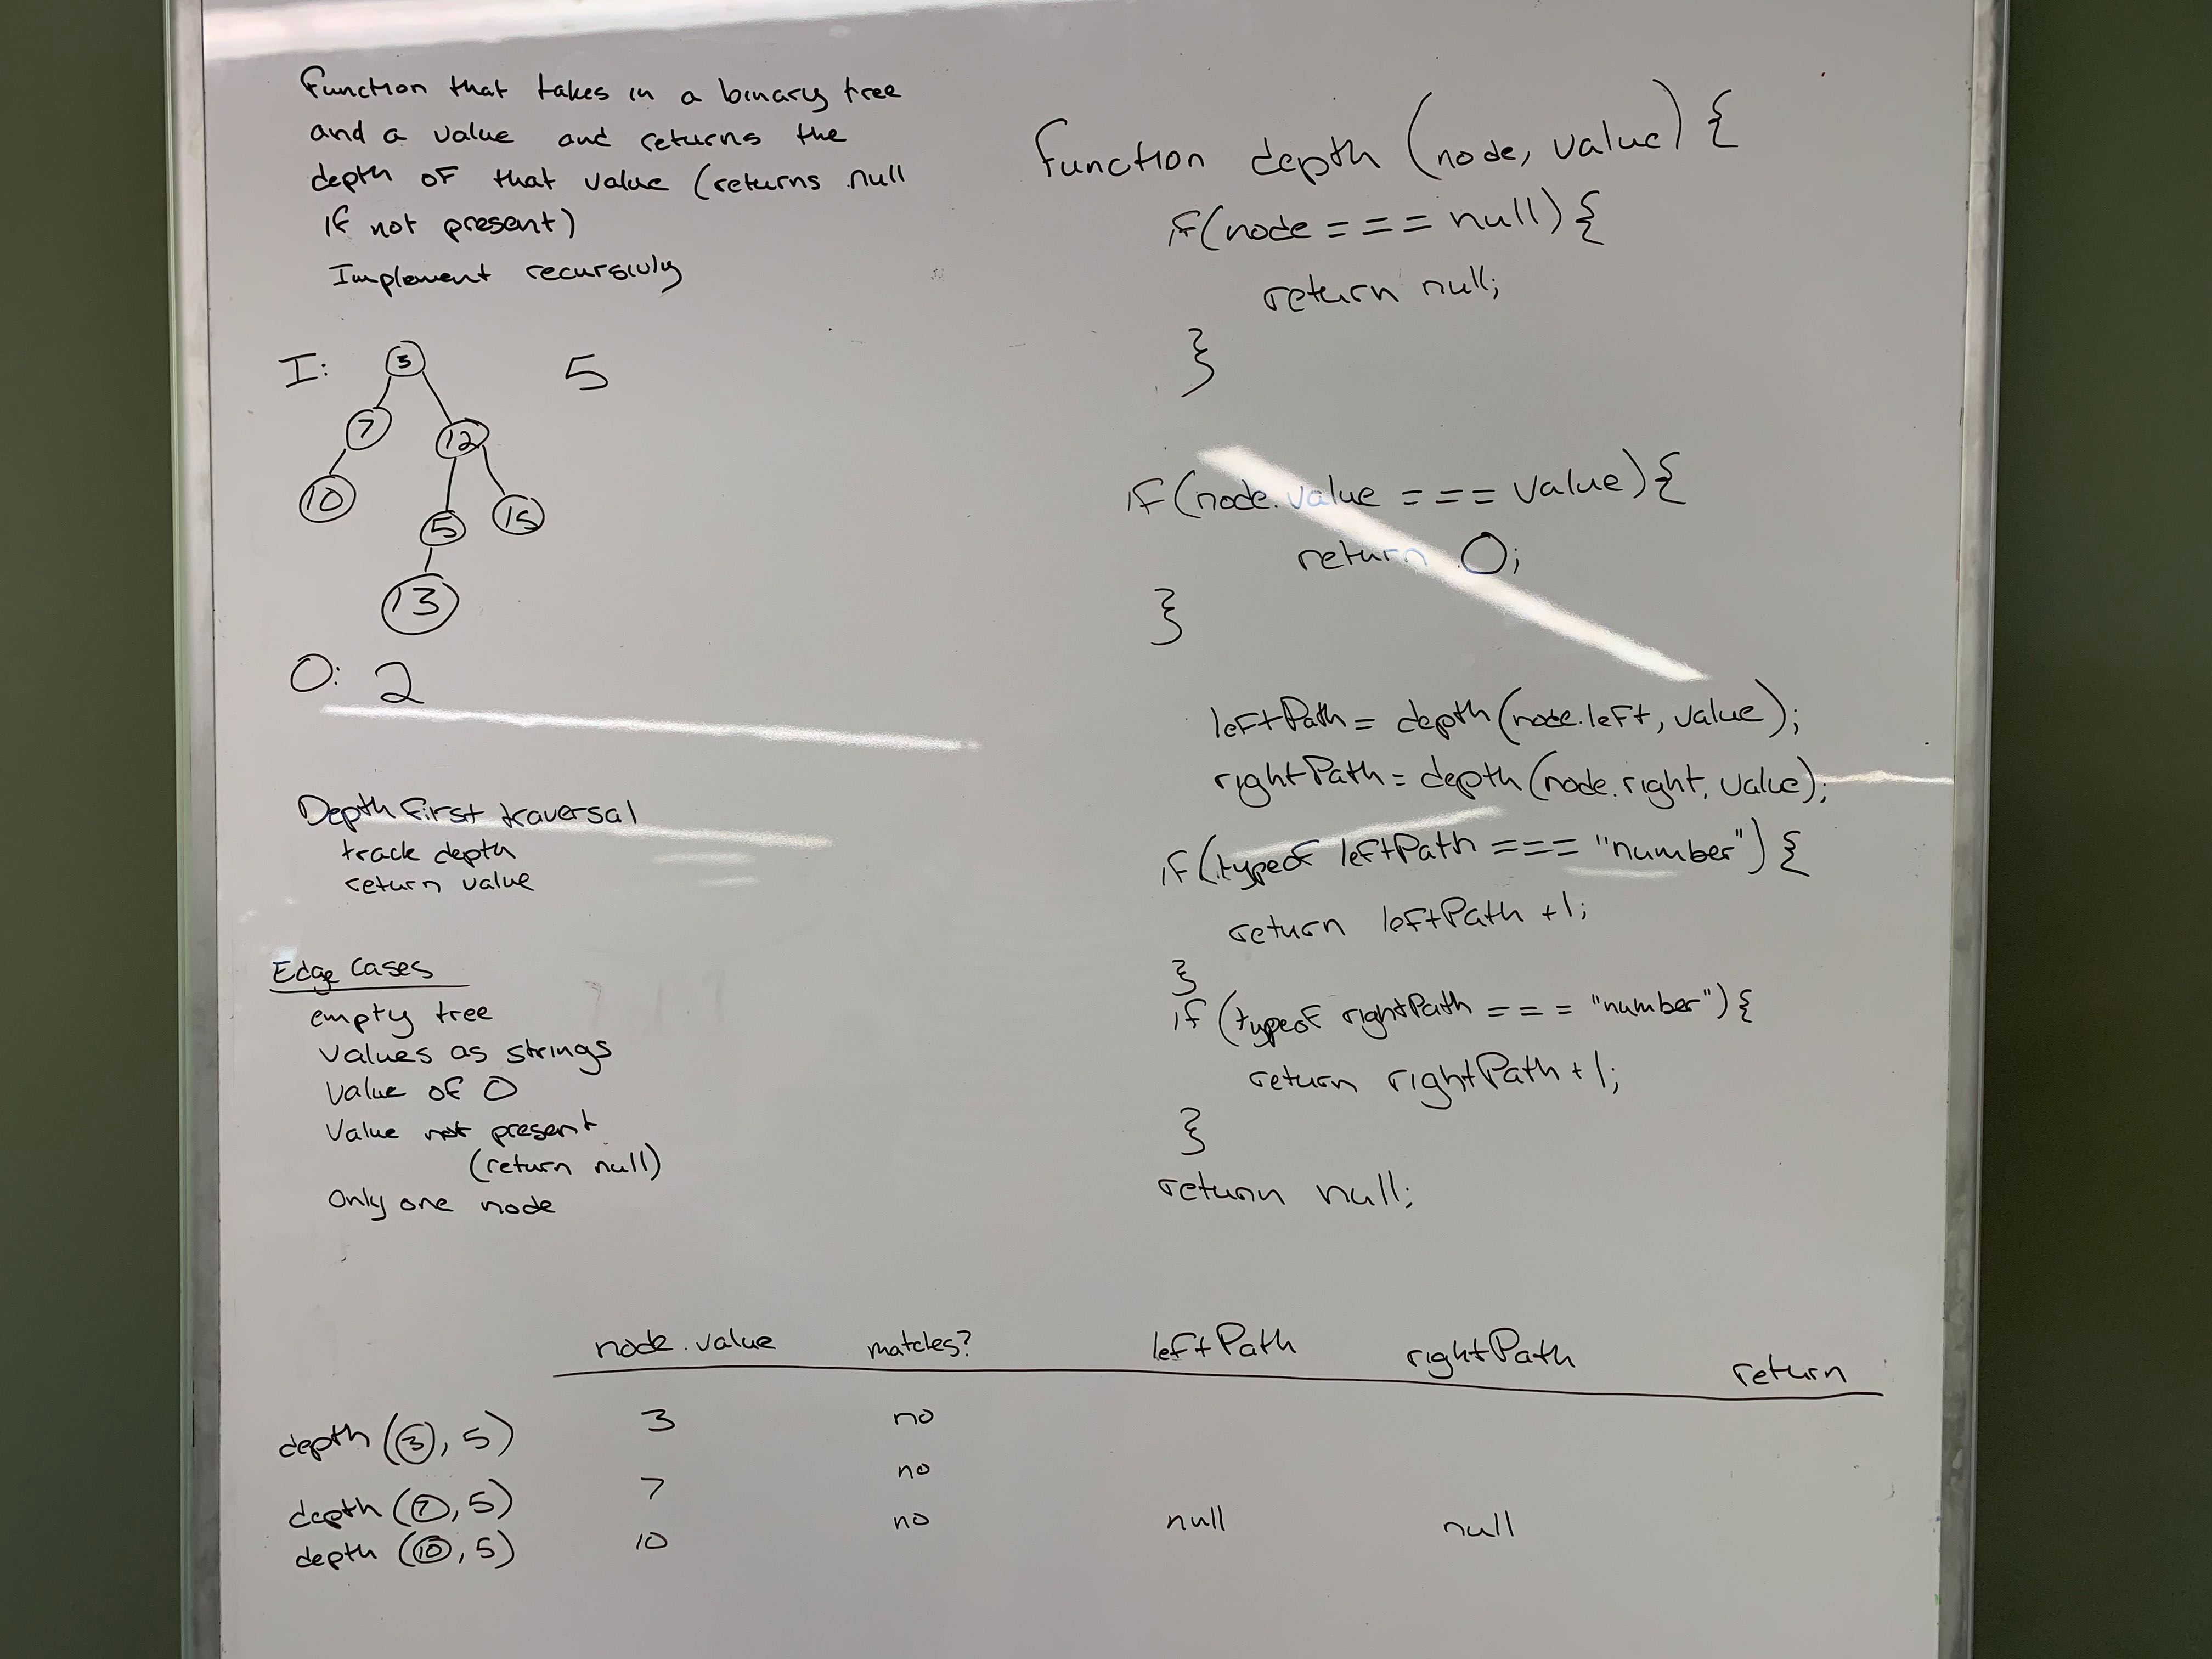 Function that takes in a binary tree
and a value and returns the
depth of that value (returns null
if not present)
Implement recursivly
I:
5
3
7
12
10
5
15
13
O: 2
Depth first traversal
track depth
return value
Edge Cases
empty tree
values as strings
value of 0
Value not present
(return null)
Only one node
function depth (node, value) {
if(node === null){
return null;
}
if(node.value === value){
return 0;
}
leftPath = depth(node.left, value);
rightPath = depth(node.right, value);
if(typeof leftPath === "number") {
return leftPath +1;
}
if (typeof rightPath === "number"){
return rightPath +1;
}
return null;
node.value matches? leftPath rightPath return
depth (3, 5) 3 no
depth (7, 5) 7 no
depth (10, 5) 10 no null null